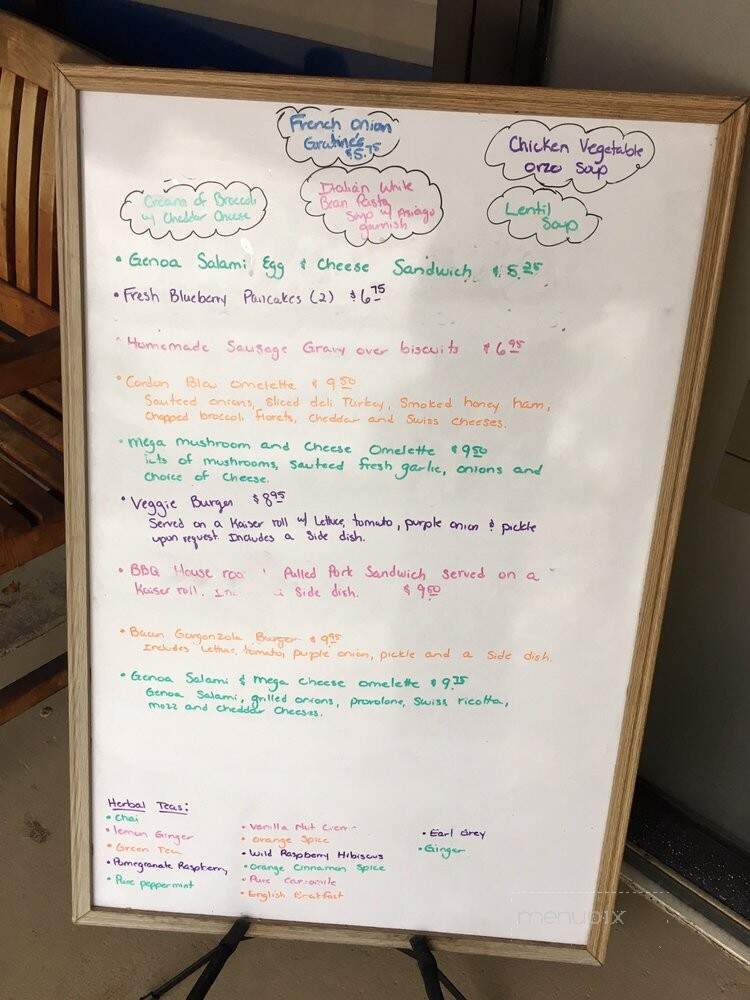 French Onion
Gratinée
$5.75
Chicken Vegetable
orzo Soup
Cream of Broccoli
w/ Cheddar Cheese
Italian White
Bean Pasta
Soup w/ Asiago
garnish
Lentil
Soup
• Genoa Salami, Egg & Cheese Sandwich $8.25
• Fresh Blueberry Pancakes (2) $6.75
• Homemade Sausage Gravy over biscuits $6.95
• Cordon Bleu omelette $9.50
Sauteed onions, sliced deli Turkey, Smoked honey ham,
Chopped broccoli florets, Cheddar and Swiss cheeses.
• Mega mushroom and Cheese Omelette $9.50
lots of mushrooms, sauteed fresh garlic, onions and
choice of Cheese.
• Veggie Burger $8.95
Served on a Kaiser roll w/ Lettuce, tomato, purple onion & pickle
upon request. Includes a Side dish.
• BBQ House Pulled Pork Sandwich served on a
Kaiser roll. Side dish. $9.50
• Bacon Gorgonzola Burger $9.95
Includes lettuce, tomato, purple onion, pickle and a side dish.
• Genoa Salami & Mega Cheese omelette $9.75
Genoa Salami, grilled onions, provolone, Swiss ricotta,
mozz and cheddar Cheeses.
Herbal Teas:
• Chai
• lemon Ginger
• Green Tea
• Pomegranate Raspberry
• Pure peppermint
• Vanilla Nut Creme
• Orange Spice
• Wild Raspberry Hibiscus
• Orange Cinnamon Spice
• Pure Camomile
• English Breakfast
• Earl Grey
• Ginger
menupix